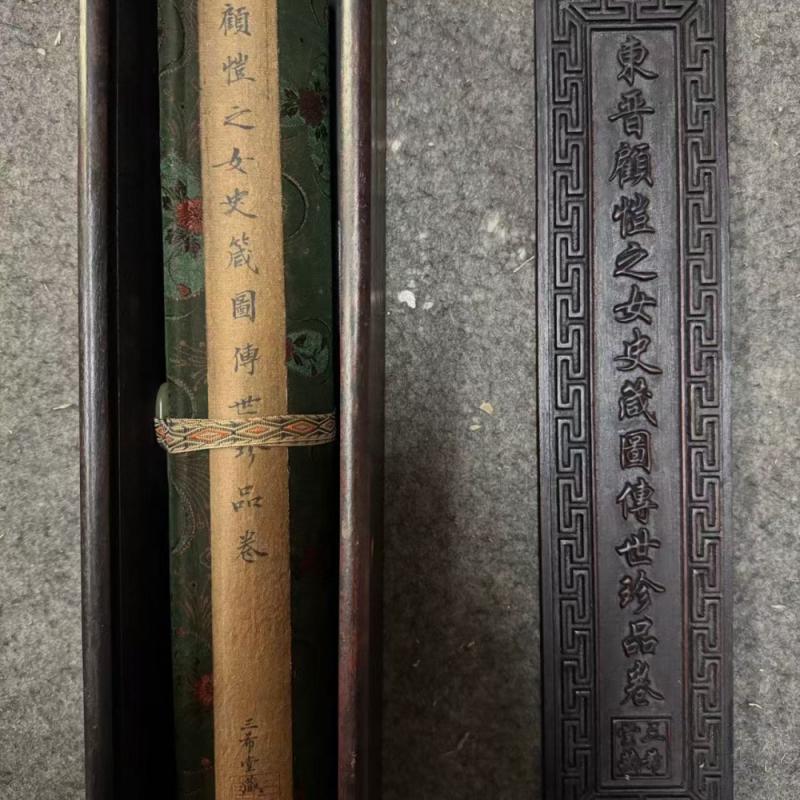 顧愷之女史箴圖傳世珍品卷
三希堂藏
東晋顧愷之女史箴圖傳世珍品卷
三希
堂藏